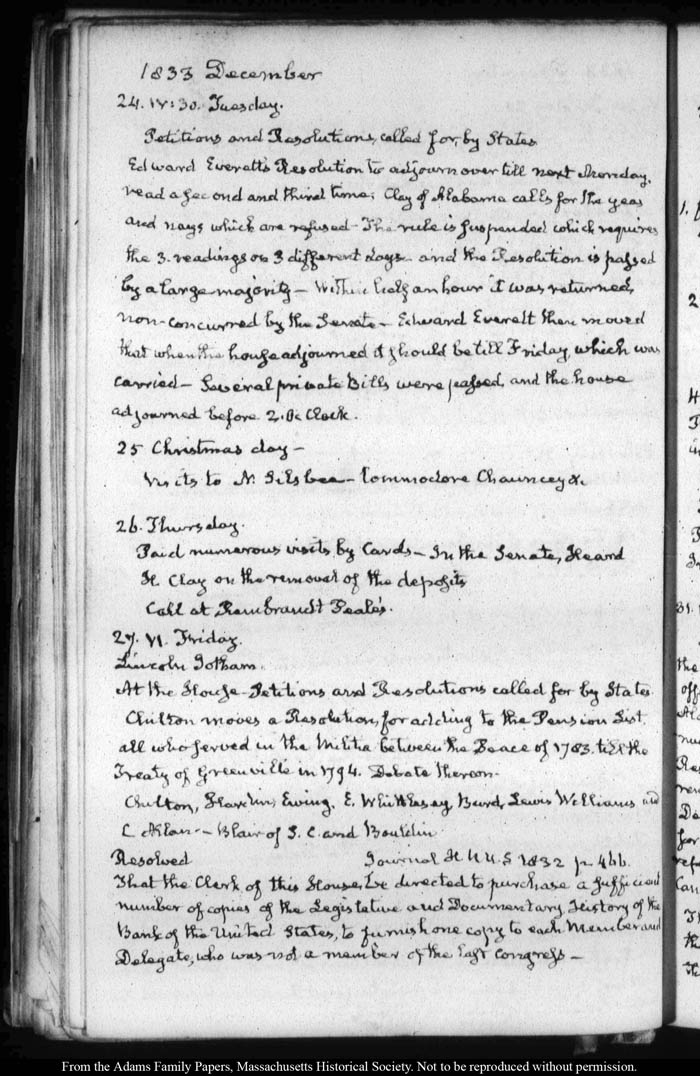 1833 December
24. IV:30. Tuesday.
Petitions and Resolutions, called for, by States
Edward Everett's Resolution to adjourn over till next Monday,
read a second and third time; Clay of Alabama calls for the yeas
and nays which are refused - The rule is suspended which requires
the 3. readings on 3 different days and the Resolution is passed
by a large majority - Within half an hour it was returned,
non-concurred by the Senate - Edward Everett then moved
that when the house adjourned it should be till Friday, which was
carried - Several private Bills were passed, and the house
adjourned before 2. O'Clock.
25 Christmas day -
Visits to N. Silsbee - Commodore Chauncey &c.
26. Thursday.
Paid numerous visits by Cards - In the Senate, Heard
H. Clay on the removal of the deposits
Call at Rembrandt Peale's.
27. VI. Friday.
Lincoln Gotham.
At the House - Petitions and Resolutions called for by States.
Chilton moves a Resolution, for adding to the Pension List,
all who served in the Militia between the Peace of 1783. till the
Treaty of Greenville in 1794. Debate thereon.
Chilton, Hardin, Ewing, E. Whittlesey, Burd, Lewis Williams and
C Allan - Blair of S. C. and Bouldin
Resolved Journal H R U.S 1832 p. 466
That the Clerk of this House, be directed to purchase a sufficient
number of copies of the Legislative and Documentary History of the
Bank of the United States, to furnish one copy to each Member and
Delegate, who was not a member of the last Congress -
From the Adams Family Papers, Massachusetts Historical Society. Not to be reproduced without permission.